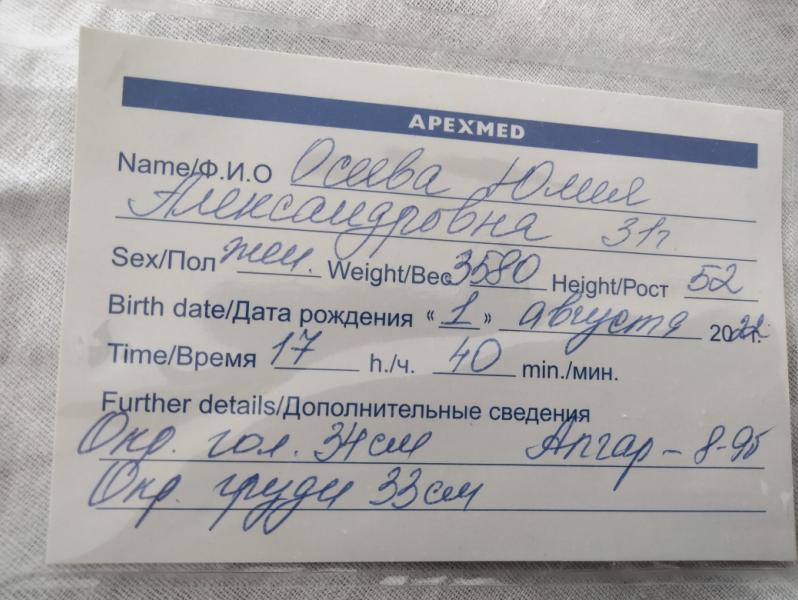 APEXMED
Name/Ф.И.О Осеева Юлия
Александровна 31г
Sex/Пол жен. Weight/Вес 3580 Height/Рост 52
Birth date/Дата рождения «1» августа 2022г.
Time/Время 17 h./ч. 40 min./мин.
Further details/Дополнительные сведения
Окр. гол. 34см Апгар - 8-9б
Окр. груди 33см